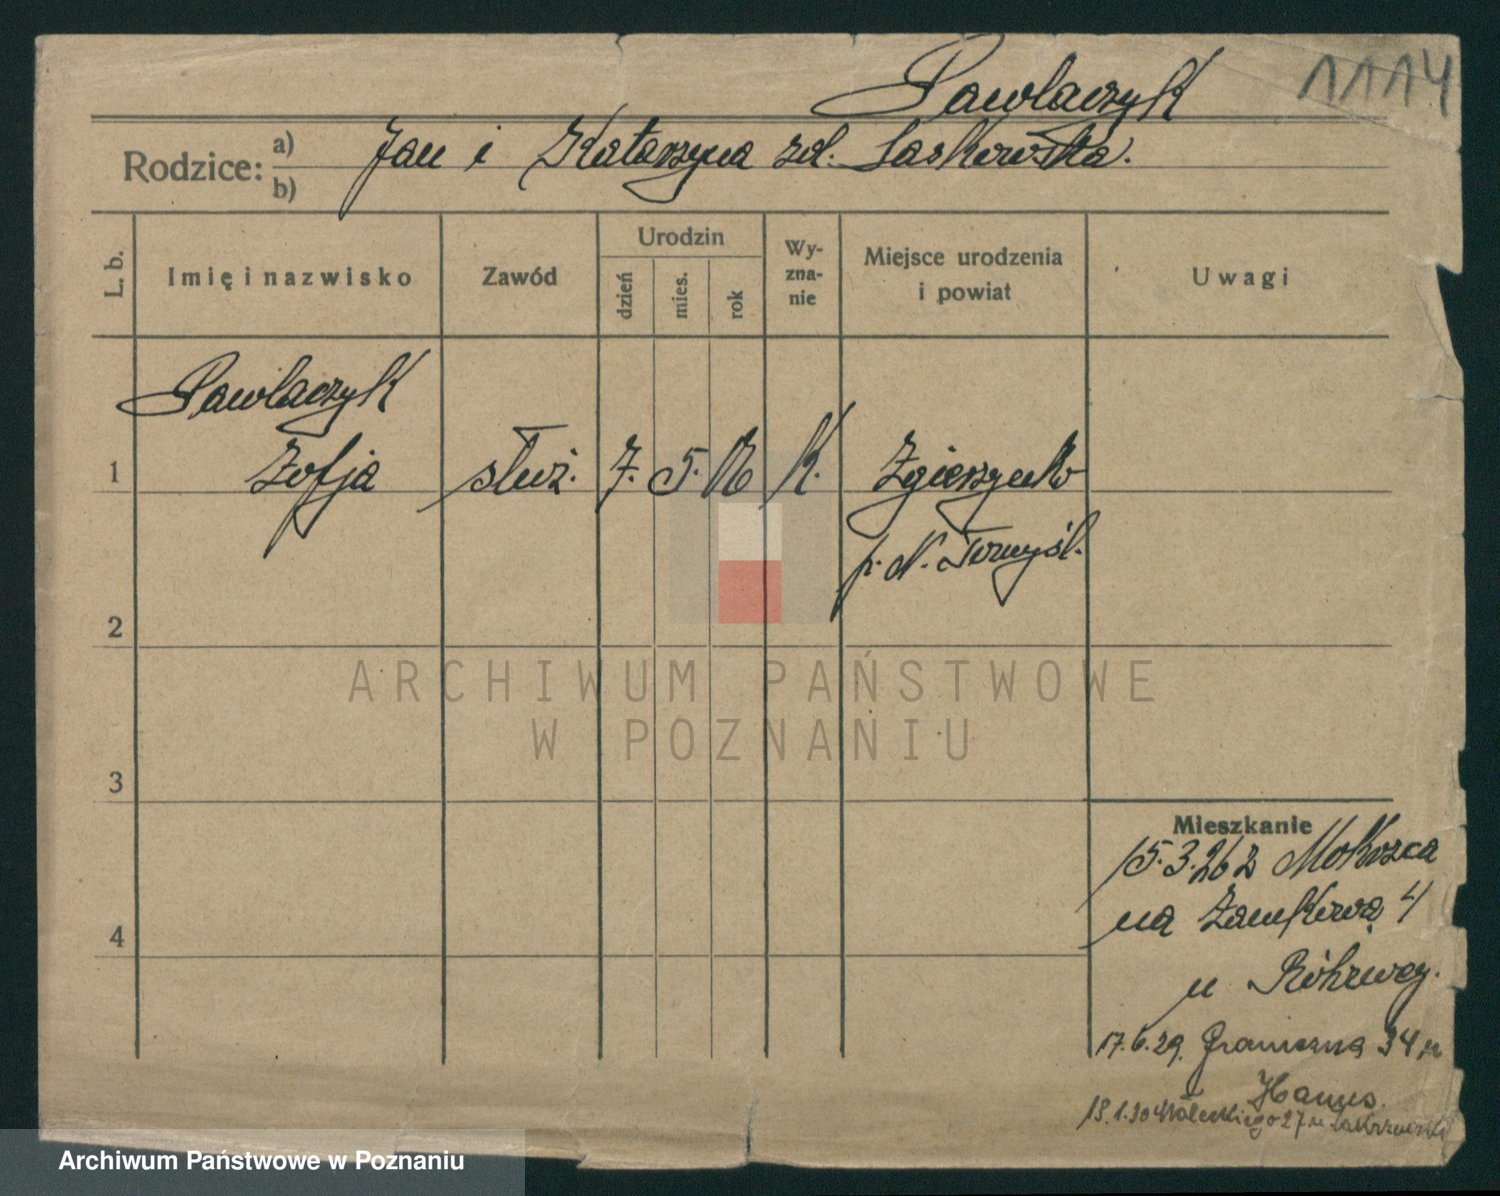 Pawlaczyk
1114
Rodzice: a) Jan i Katarzyna zd. Laskowska.
b)
L. b.
Imię i nazwisko
Zawód
Urodzin
dzień
mies.
rok
Wy-
zna-
nie
Miejsce urodzenia
i powiat
Uwagi
Pawlaczyk
1 Zofja służ. 7. 5. K. Zgierzynko
p. N. Tomyśl.
2
3
4
ARCHIWUM PAŃSTWOWE
W POZNANIU
Mieszkanie
15.3.26 z Mokrzca
na Zamkową 4
u
17.6.29. Graniczna 34 u
18.1.30 27 u
Archiwum Państwowe w Poznaniu